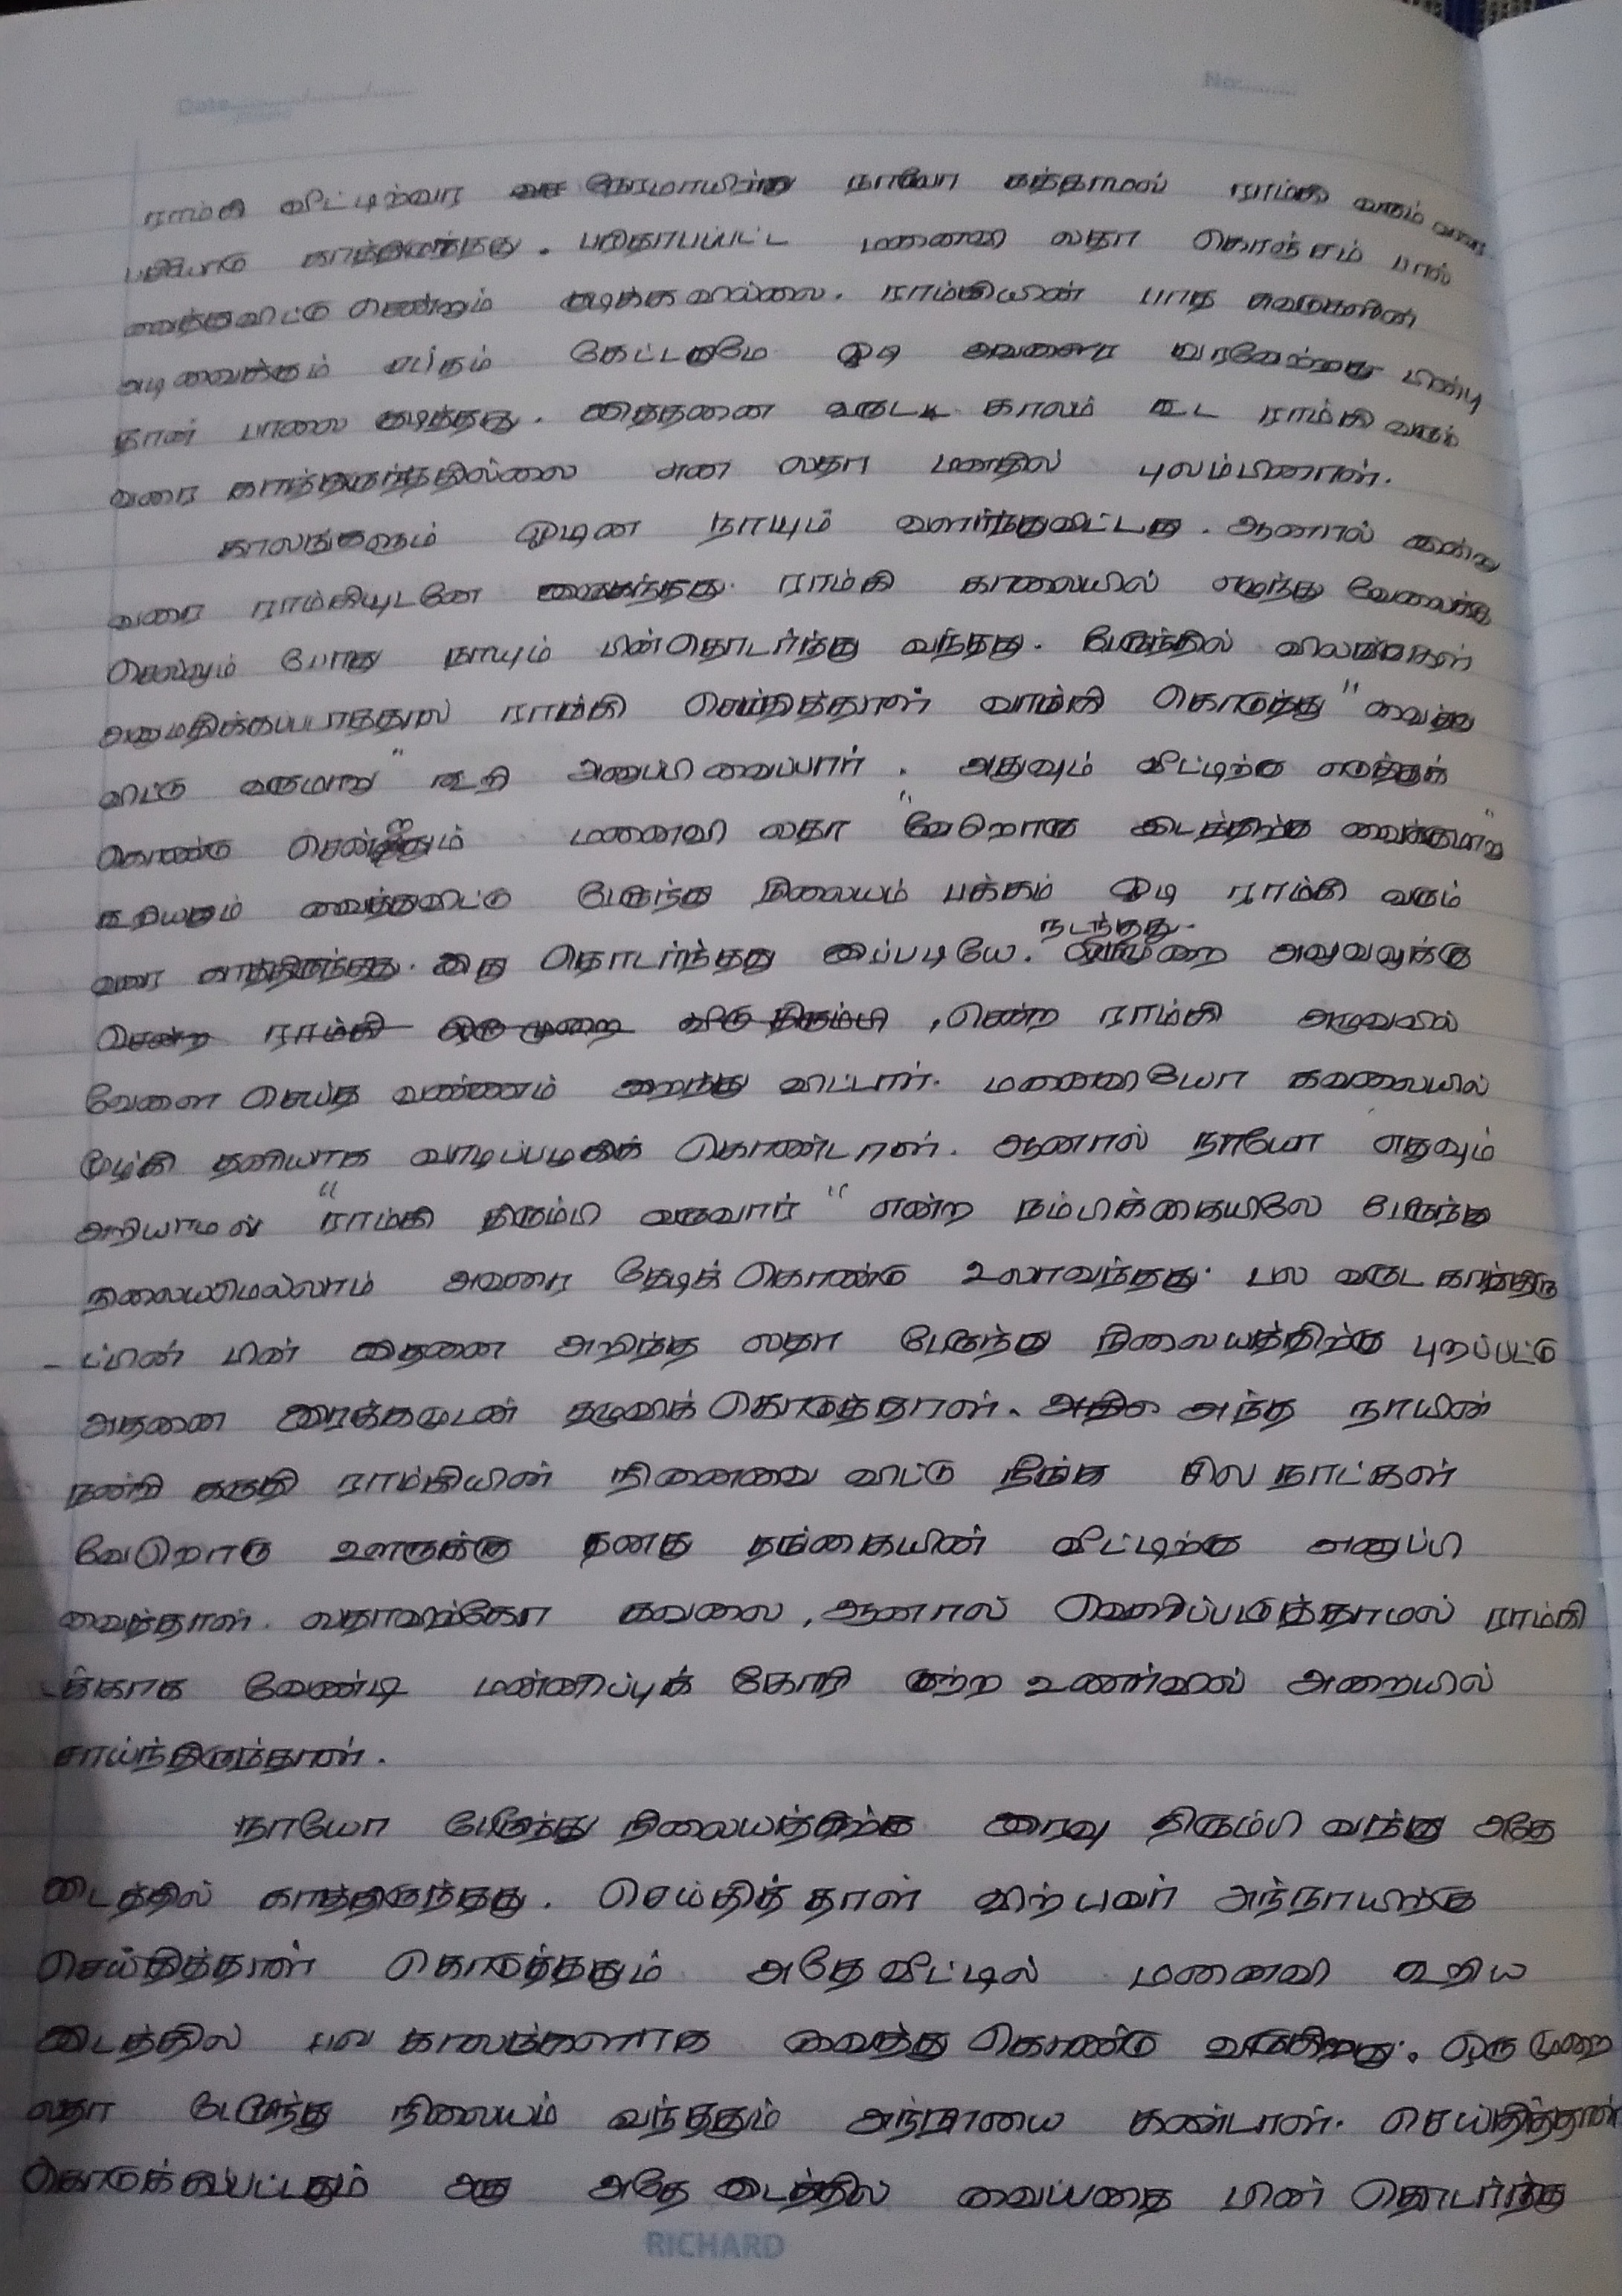 Date
No:
ராம்கி வீட்டிற்வர நேரமாயிற்று நாயோ கத்தாமல் ராம்கி வரும் வரை
காத்திருந்தது. பரிதாபப்பட்ட மனைவி லதா கொஞ்சம் பால்
வைத்துவிட்டு சென்றும் குடிக்கவில்லை. ராம்கியின் பாத சுவடுகளின்
அடி வைக்கும் சப்தம் கேட்டதுமே ஓடி அவரை வரவேற்றது பின்பு
தான் பாலை குடித்தது. இத்தனை வருட காலம் கூட ராம்கி வரும்
வரை காத்திருந்ததில்லை என லதா மனதில் புலம்பினாள்.
காலங்களும் ஓடின நாயும் வளர்ந்துவிட்டது. ஆனால் இன்று
வரை ராம்கியுடனே இருந்தது. ராம்கி காலையில் எழுந்து வேலைக்கு
செல்லும் போது நாயும் பின்தொடர்ந்து வந்தது. பேருந்தில் விலங்குகள்
அனுமதிக்கப்படாததால் ராம்கி செய்தித்தாள் வாங்கி கொடுத்து " வைத்து
விட்டு வருமாறு " கூறி அனுப்பி வைப்பார். அதுவும் வீட்டிற்கு எடுத்துக்
கொண்டு சென்றதும் மனைவி லதா "வேறொரு இடத்திற்கு வைக்குமாறு"
கூறியதும் வைத்துவிட்டு பேருந்து நிலையம் பக்கம் ஓடி ராம்கி வரும்
நடந்தது.
வரை காத்திருந்தது. இது தொடர்ந்தது இப்படியே. ஒருமுறை அலுவலுக்கு
சென்ற ராம்கி ஒரு முறை வீடு திரும்பி , சென்ற ராம்கி அலுவலில்
வேலை செய்த வண்ணம் இறந்து விட்டார். மனைவியோ கவலையில்
மூழ்கி தனியாக வாழப்பழகிக் கொண்டாள். ஆனால் நாயோ எதுவும்
அறியாமல் "ராம்கி திரும்பி வருவார்" என்ற நம்பிக்கையிலே பேருந்து
நிலையமெல்லாம் அவரை தேடிக் கொண்டு உலாவந்தது. பல வருட காத்திரு
- ப்பின் பின் இதனை அறிந்த லதா பேருந்து நிலையத்திற்கு புறப்பட்டு
அதனை இரக்கமுடன் தழுவிக் கொடுத்தாள். அதில் அந்த நாயின்
நன்றி கருதி ராம்கியின் நினைவை விட்டு நீங்க சில நாட்கள்
வேறொரு ஊருக்கு தனது தங்கையின் வீட்டிற்கு அனுப்பி
வைத்தாள். லதாவுக்கோ கவலை, ஆனால் வெளிப்படுத்தாமல் ராம்கி
-க்காக வேண்டி மன்னிப்புக் கோரி குற்ற உணர்வில் அறையில்
சாய்ந்திருந்தாள்.
நாயோ பேருந்து நிலையத்திற்கு இரவு திரும்பி வந்து அதே
இடத்தில் காத்திருந்தது. செய்தித் தாள் விற்பவர் அந்நாயிற்கு
செய்தித்தாள் கொடுத்ததும் அதே வீட்டில் மனைவி கூறிய
இடத்தில் பல காலங்களாக வைத்து கொண்டு வருகிறது. ஒரு முறை
லதா பேருந்து நிலையம் வந்ததும் அந்நாயை கண்டாள். செய்தித்தாள்
கொடுக்கப்பட்டதும் அது அதே இடத்தில் வைப்பதை பின் தொடர்ந்து
RICHARD